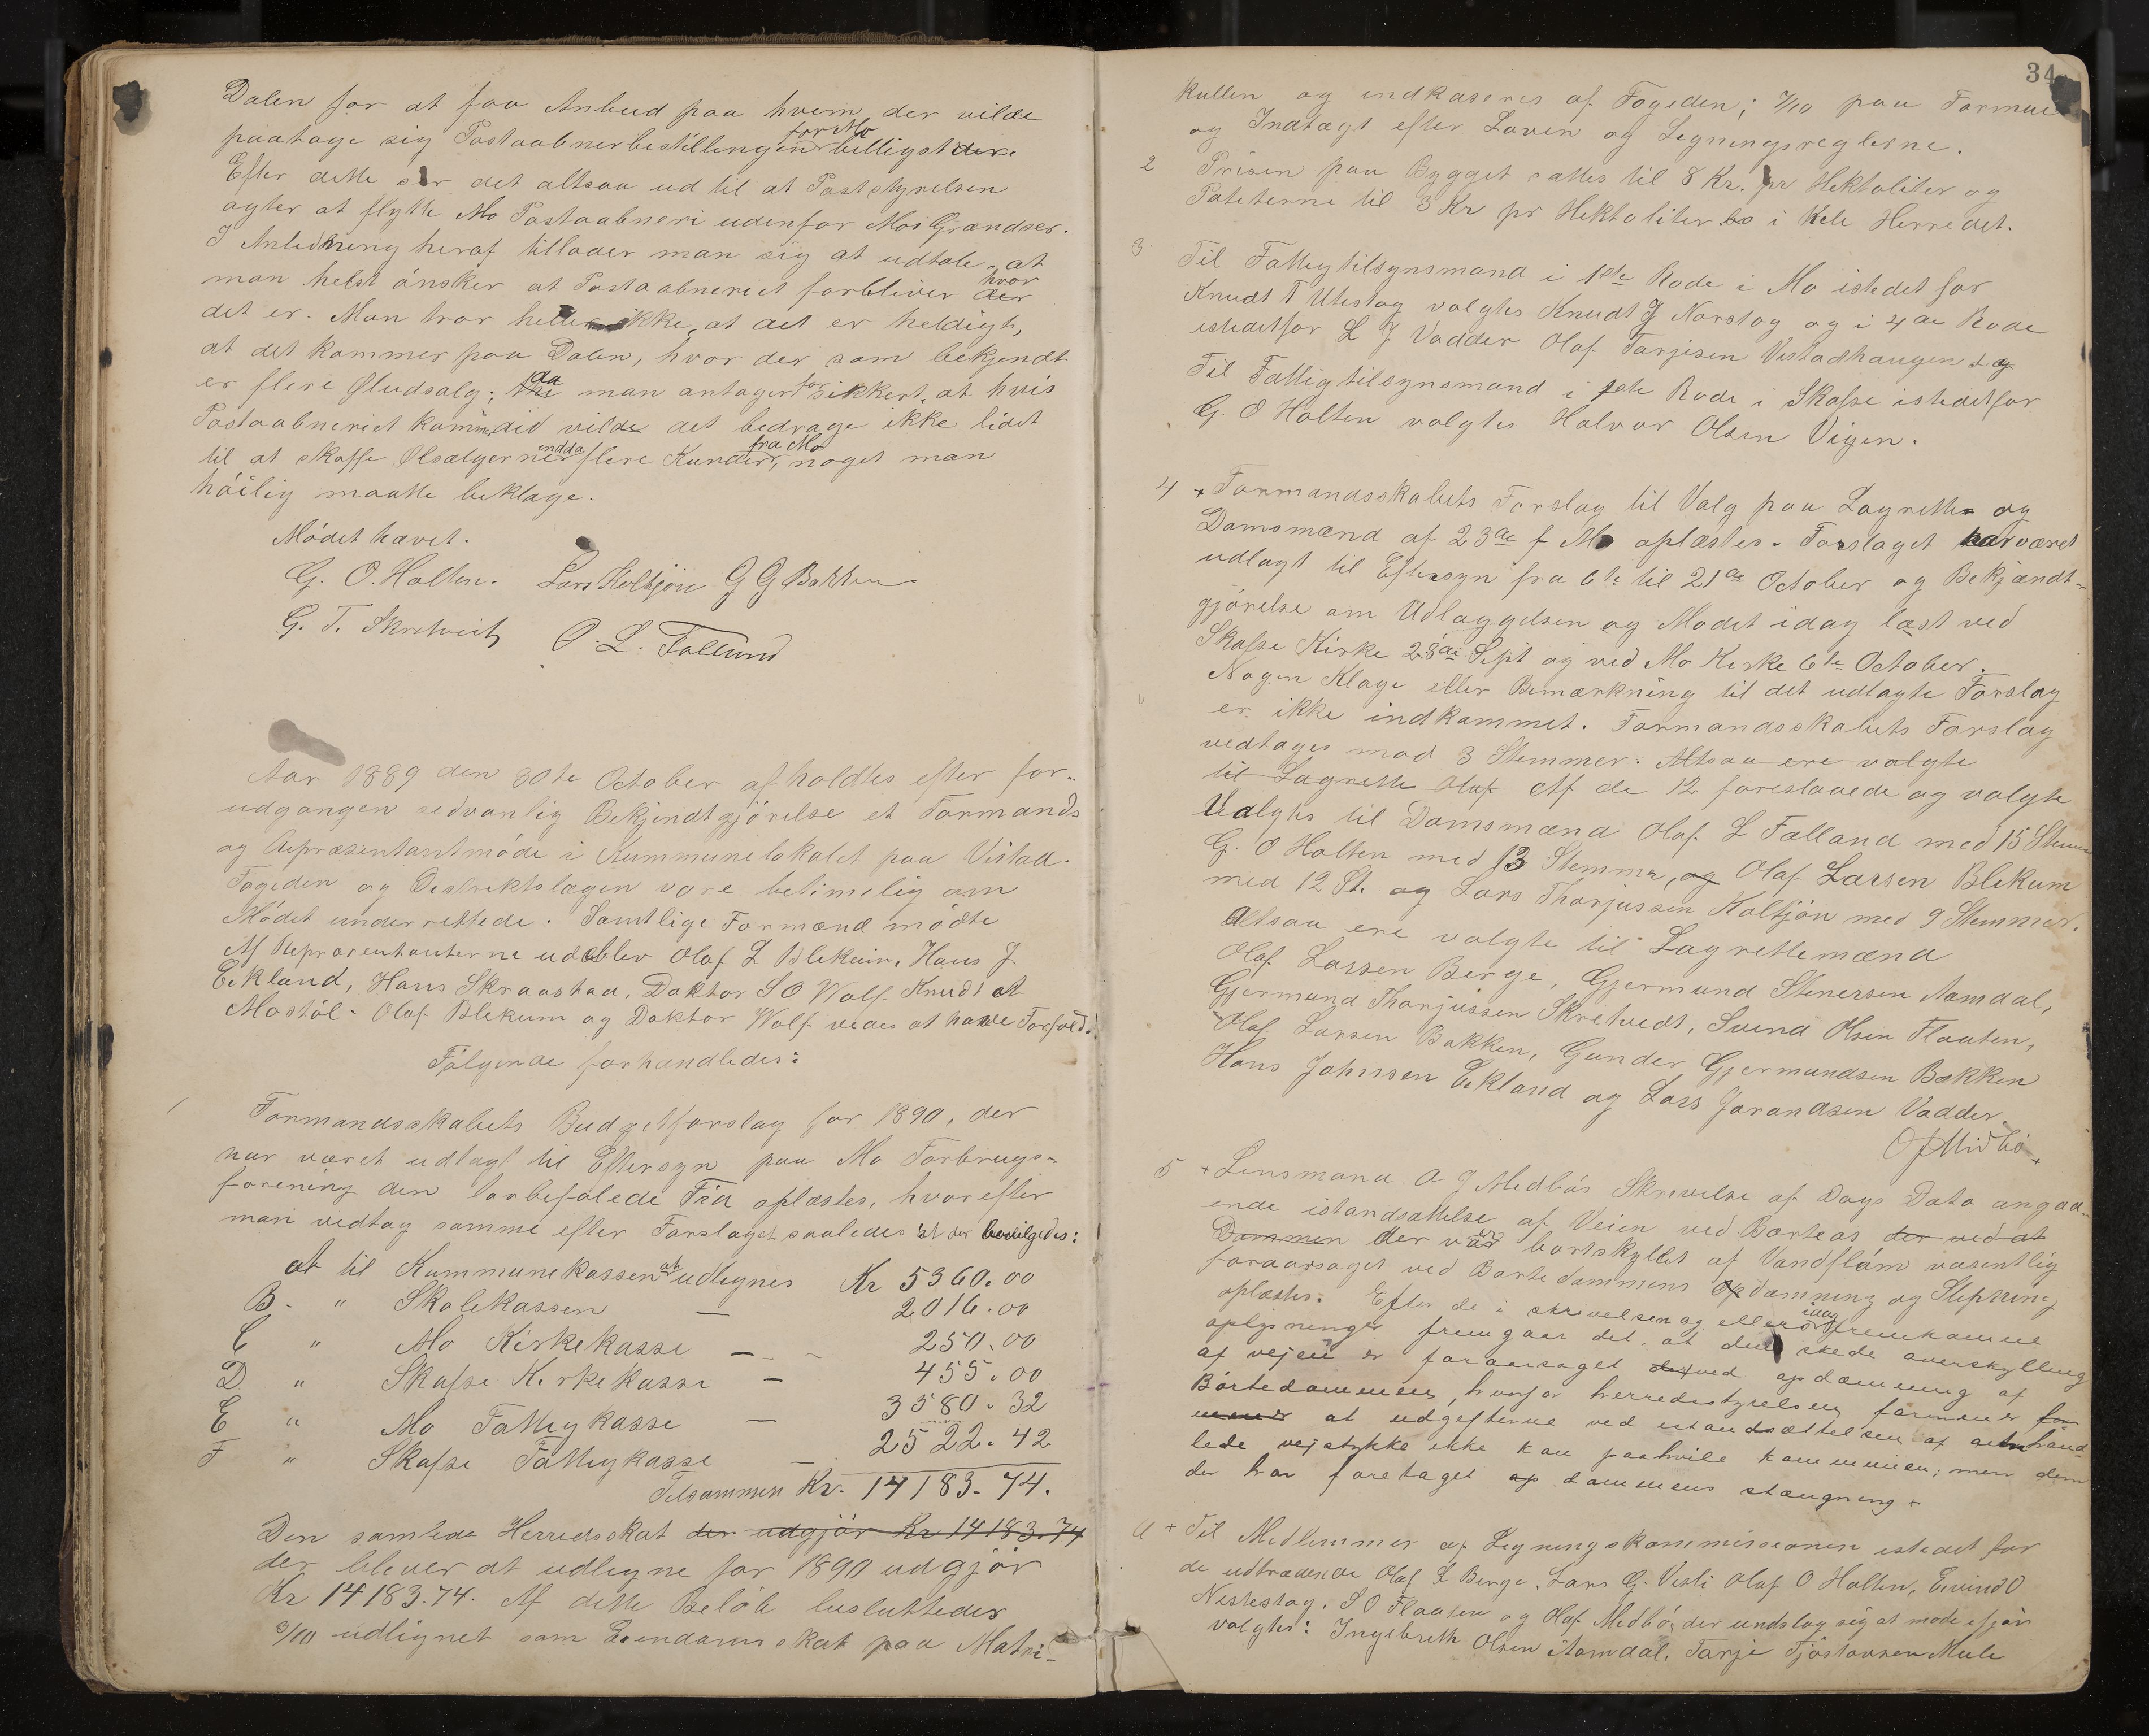 Dalen for at faa Anbud paa hvem der vilde
paatage sig Postaabnerbestillingen for Mo billigst
Efter dette ser det altsaa ud til at Poststyrelsen
agter at flytte Mo Postaabneri udenfor Mos Grændser.
I Anledning heraf tillader man sig at udtale, at
man helst ønsker at Postaabneriet forbliver der hvor
det er. Man tror heller ikke, at det er heldigt,
at det kommer paa Dalen, hvor der som bekjendt
er flere Øludsalg; da man antager for sikkert, at hvis
Postaabneriet kom did vilde det bedrage ikke lidet
til at skaffe Ølsælgerne endda flere Kunder fra Mo, noget man
høilig maatte beklage.
Mødet hævet.
G. O. Holten. Lars Koltjøn G G Bakken
G. T. Skretveit O. L. Falland
Aar 1889 den 30te October afholdtes efter for-
udgangen sedvanlig Bekjendtgjørelse et Formands
og Repræsentantmøde i Kummunelokalet paa Vistad.
Fogeden og Destriktslægen vare betimelig om
Mødet underrettede. Samtlige Formænd mødte
Af Repræsentanterne udeblev Olaf L Blekum, Hans J
Eekland, Hans Skraastad, Doktor S O Wolf. Knudt A
Mostøl. Olaf Blekum og Doktor Wolf vides at have Forfald.
Følgende forhandledes:
1 Formandsskabets Budgetforslag for 1890, der
har været udlagt til Eftersyn paa Mo Forbrugs-
forening den lovbefalede Tid oplæstes, hvorefter
man vedtog samme efter Forslaget saaledes at der bevilgedes:
At til Kummunekassen at udlignes Kr 5360.00
B. " Skolekassen — 2016.00
C " Mo Kirkekasse — 250.00
D " Skafse Kirkekasse — 455.00
E " Mo Fattigkasse — 3580.32
F " Skafse Fattigkasse — 2522.42
Tilsammen Kr. 14183.74.
Den samlede Herredsskat der udgjør Kr 14183.74
der blever at udligne for 1890 udgjør
Kr 14183.74. Af dette Beløb besluttedes
3/10 udlignet som Eiendomsskat paa Matri-
34
kullen og indkaseres af Fogeden; 7/10 paa Formue
og Indtægt efter Loven og Legningsreglerne.
2 Prisen paa Bygget sattes til 8 Kr. pr Hektoliter og
Poteterne til 3 Kr pr Hektoliter i hele Herredet.
3 Til Fattigtilsynsmand i 1ste Rode i Mo istedet for
Knudt T Utistog valgtes Knudt J Norstog og i 4de Rode
istedetfor L J Vadder Olaf Tarjesen Vistadhaugen og
Til Fattigtilsynsmand i 1ste Rode i Skafse istedetfor
G. O Holten valgtes Halvor Olsen Vigen.
4 Formandsskabets Forslag til Valg paa Lagrette- og
Domsmænd af 23de f M oplæstes. Forslaget har været
udlagt til Eftersyn fra 6te til 21de October og Bekjændt-
gjørelse om Udlæggelsen og Mødet idag læst ved
Skafse Kirke 28de Sept og ved Mo Kirke 6te October.
Nogen Klage eller Bemærkning til det udlagte Forslag
er ikke indkommet. Formandsskabets Forslag
vedtages mod 3 Stemmer. Altsaa ere valgte
til Lagrette Olaf Af de 12 foreslaaede og valgte
Valgtes til Domsmænd Olaf L Falland med 15 Stemmer
G. O Holten med 13 Stemmer, og Olaf Larsen Blekum
med 12 St. og Lars Thorjussen Koltjøn med 9 Stemmer.
Altsaa ere valgte til Lagrettemænd
Olaf Larsen Berge, Gjermund Stenersen Aamdal,
Gjermund Thorjussen Skretvedt, Svend Olsen Flaaten,
Olaf Larsen Bakken, Gunder Gjermundsen Bakken
Hans Johnsen Eekland og Lars Jorandsen Vadder
O J Midbø
5 Lensmand O J Medbøs Skrivelse af Dags Dato angaa-
ende istandsættelse af Veien ved Borteas der ved at
Dammen der var er bortskyllet af Vandflom væsentlig
foraarsaget ved Bortedammens Opdæmning og Slepning
oplæstes. Efter de i skrivelsen og ellers idag fremkomne
oplysninger fremgaar det, at den skede overskylling
af vejen er foraarsaget ved opdæmning af
Børtedammen, hvorfor herredsstyrelsen formener
at udgifterne ved istandsættelsen af omhand-
lede vejstykke ikke kan paahvile kommunen; men dem
der har foretaget dammens stængning
6 Til Medlemmer af Legningskommissionen istedet for
de udtrædende Olaf L Berge, Lars G. Vesli Olaf O Holten, Eivind O
Nistestog, S O Flaaten og Olaf Medbø, der undslog sig at møde ifjor
valgtes: Ingebreth Olsen Aamdal, Tarje Tjøstovsen Mule